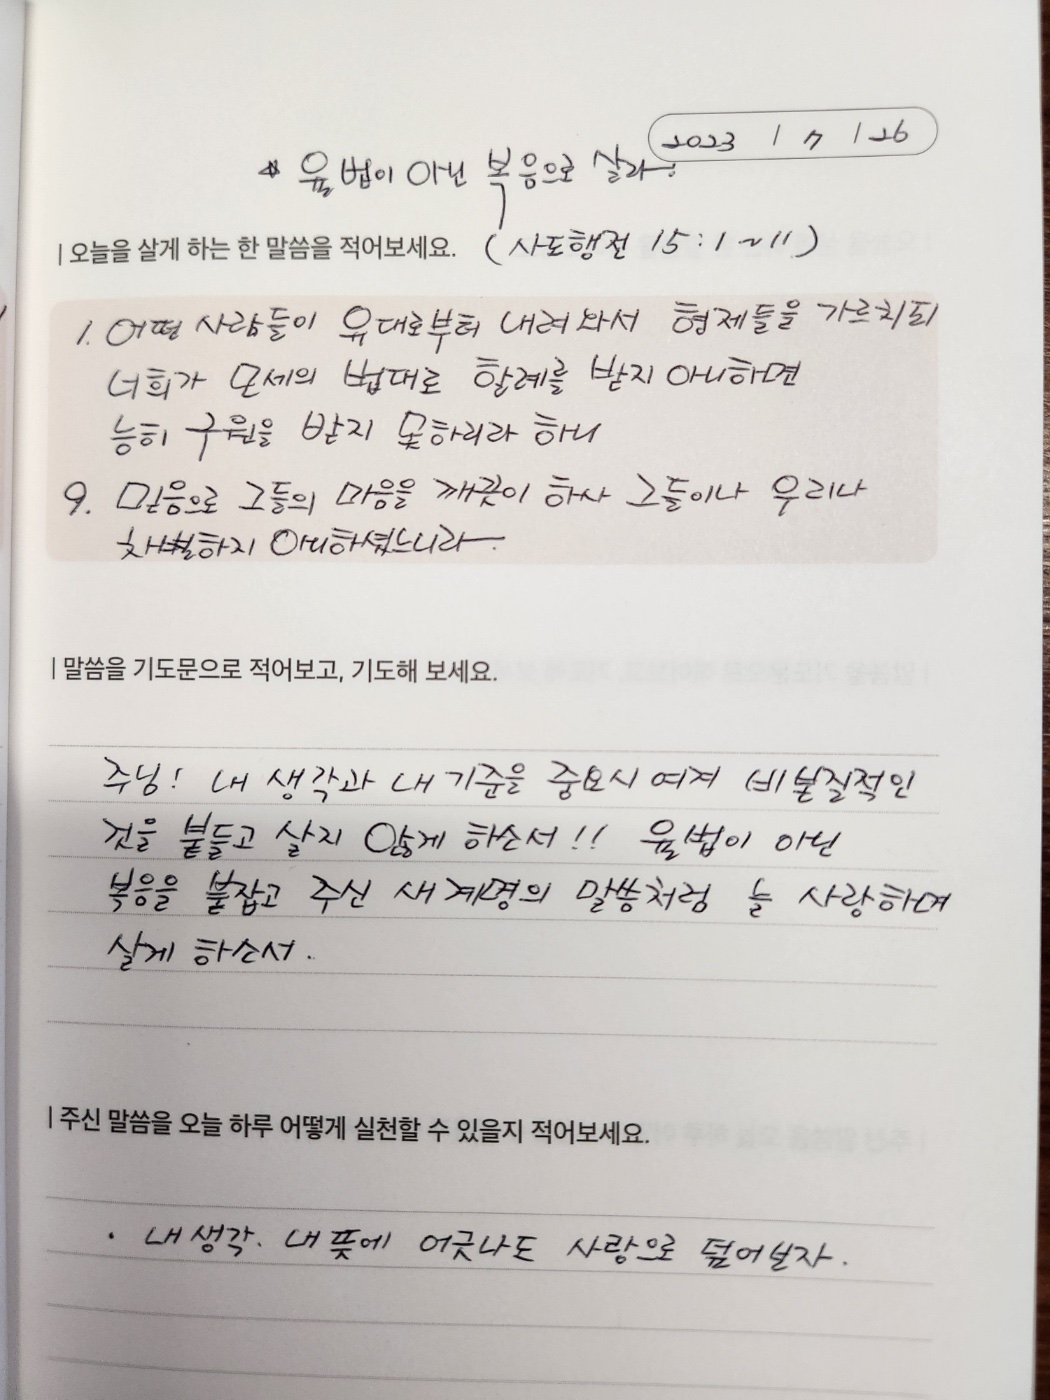 2023 / 7 / 26
* 율법이 아닌 복음으로 살라.
| 오늘을 살게 하는 한 말씀을 적어보세요. (사도행전 15:1~11)
1. 어떤 사람들이 유대로부터 내려와서 형제들을 가르치되
너희가 모세의 법대로 할례를 받지 아니하면
능히 구원을 받지 못하리라 하니
9. 믿음으로 그들의 마음을 깨끗이 하사 그들이나 우리나
차별하지 아니하셨느니라.
| 말씀을 기도문으로 적어보고, 기도해 보세요.
주님! 내 생각과 내 기준을 중요시 여겨 비본질적인
것을 붙들고 살지 않게 하소서!! 율법이 아닌
복음을 붙잡고 주신 새 계명의 말씀처럼 늘 사랑하며
살게 하소서.
| 주신 말씀을 오늘 하루 어떻게 실천할 수 있을지 적어보세요.
· 내 생각. 내 뜻에 어긋나도 사랑으로 덮어보자.